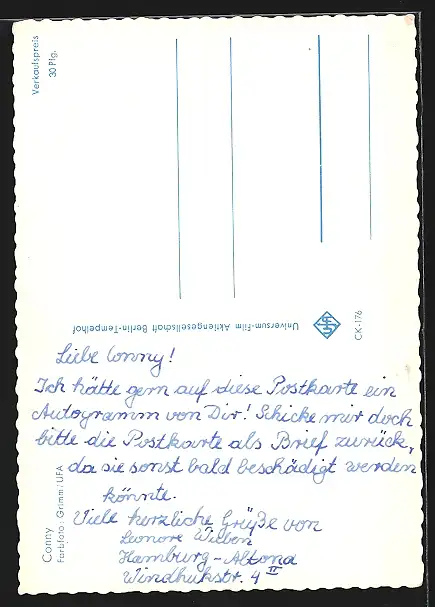 Verkaufspreis
30 Pfg.
Universum-Film Aktiengesellschaft Berlin-Tempelhof
CK-176
Liebe Conny!
Ich hätte gern auf diese Postkarte ein
Autogramm von Dir! Schicke mir doch
bitte die Postkarte als Brief zurück,
da sie sonst bald beschädigt werden
könnte.
Viele herzliche Grüße von
Leonore Wilben
Hamburg-Altona
Windhukstr. 4 II
Conny
Farbfoto: Grimm/UFA